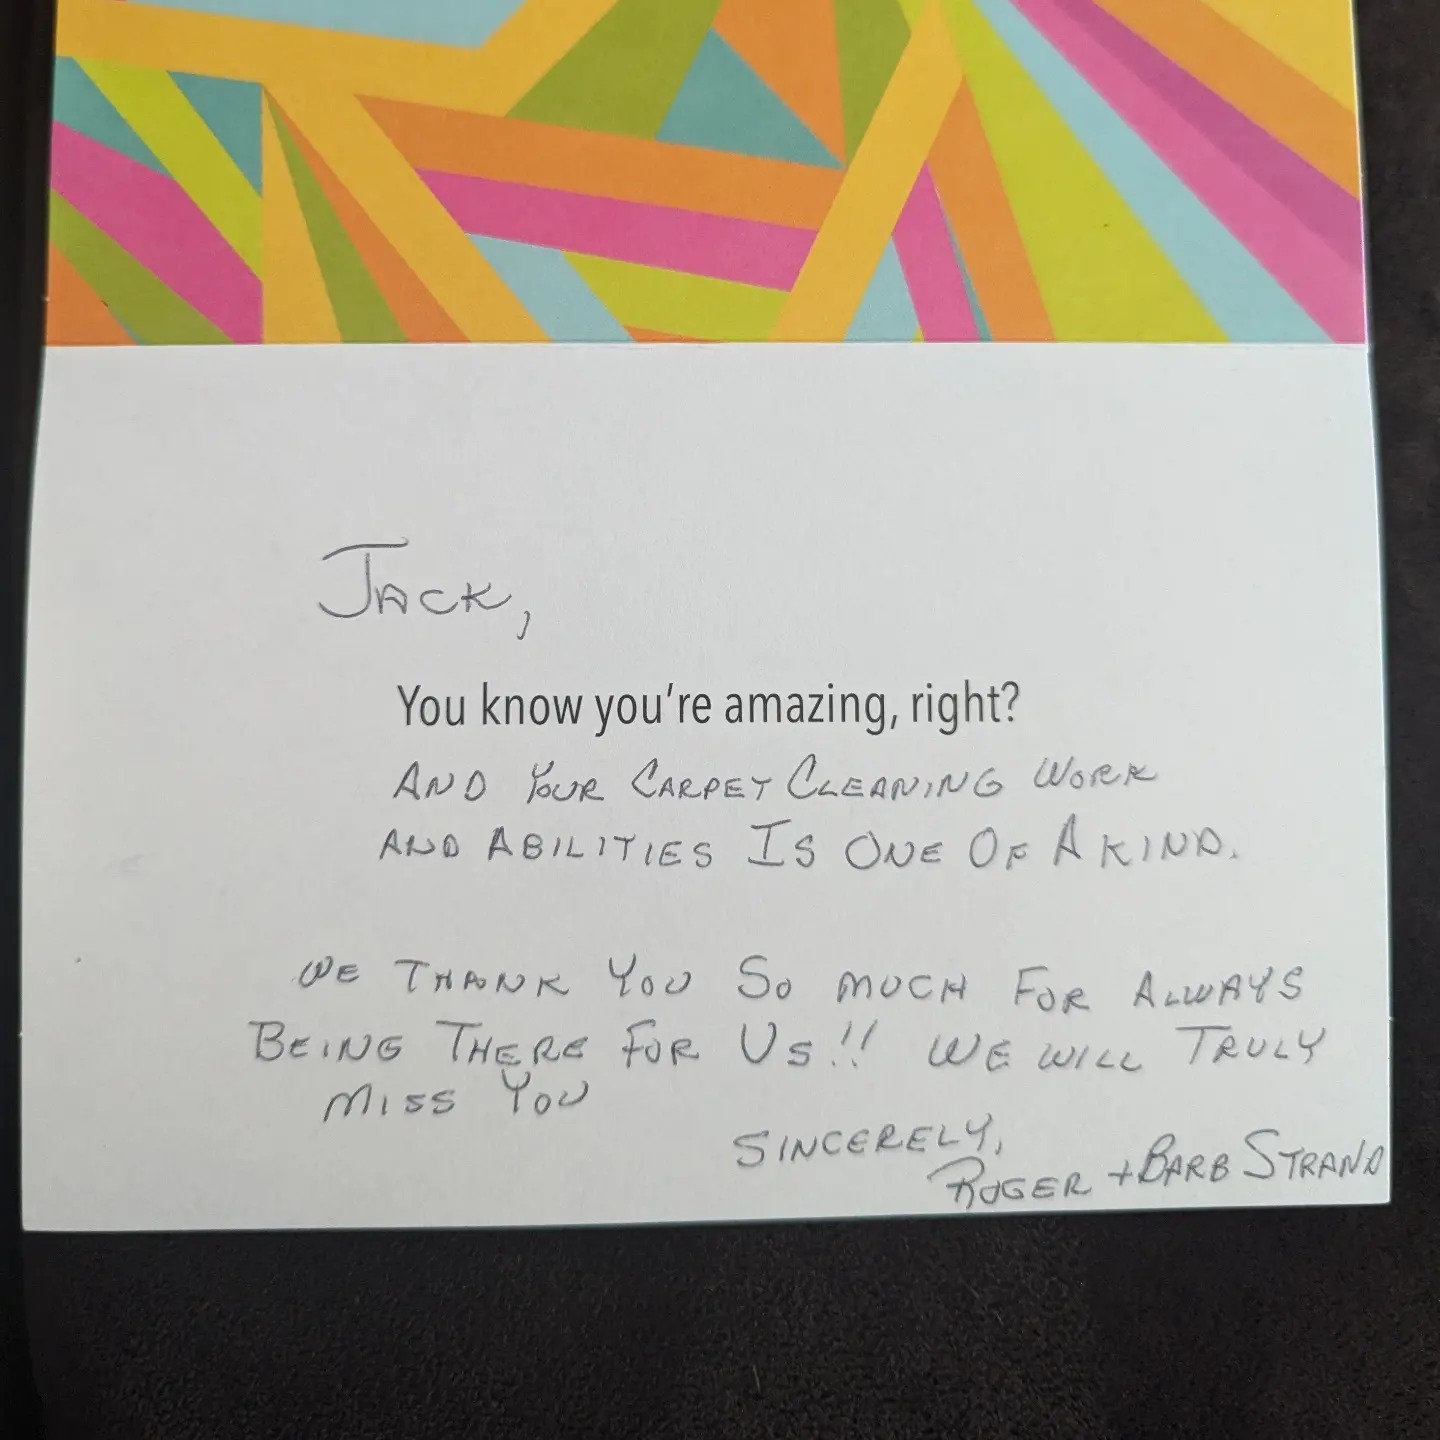 JACK,
You know you're amazing, right?
AND YOUR CARPET CLEANING WORK
AND ABILITIES IS ONE OF A KIND.
WE THANK YOU SO MUCH FOR ALWAYS
BEING THERE FOR US!! WE WILL TRULY
MISS YOU
SINCERELY,
ROGER + BARB STRAND